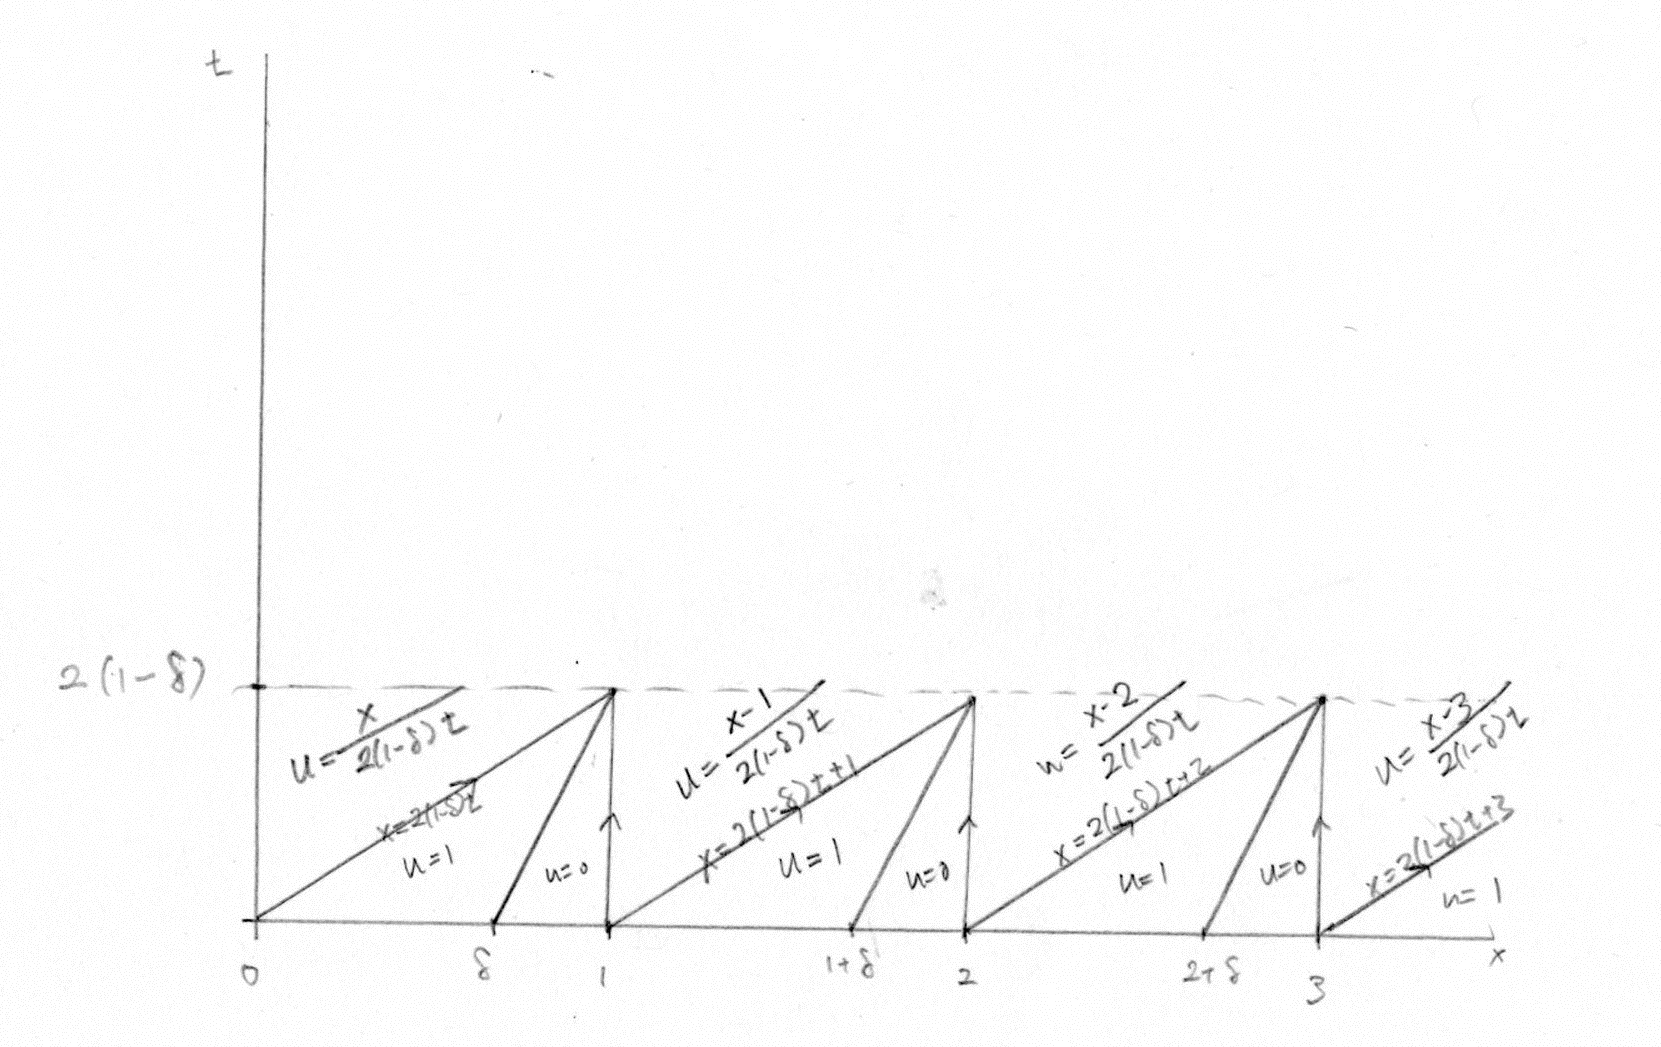 t
2(1-δ)
u= x/2(1-δ)t
x=2(1-δ)t
u=1
u=0
u= x-1/2(1-δ)t
x=2(1-δ)t+1
u=1
u=0
u= x-2/2(1-δ)t
x=2(1-δ)t+2
u=1
u=0
u= x-3/2(1-δ)t
x=2(1-δ)t+3
u=1
0 δ 1 1+δ 2 2+δ 3 x